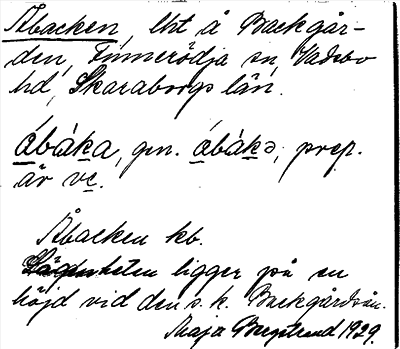 Åbacken, lht å Backgår-
den, Finnerödja sn, Vadsbo
hd, Skaraborgs län.
åbåka, gen. åbåkə, prep.
är ve.
Åbacken kb.
Lägenheten ligger på en
höjd vid den s. k. Backgårdsån.
Maja Bergstrand 1929.